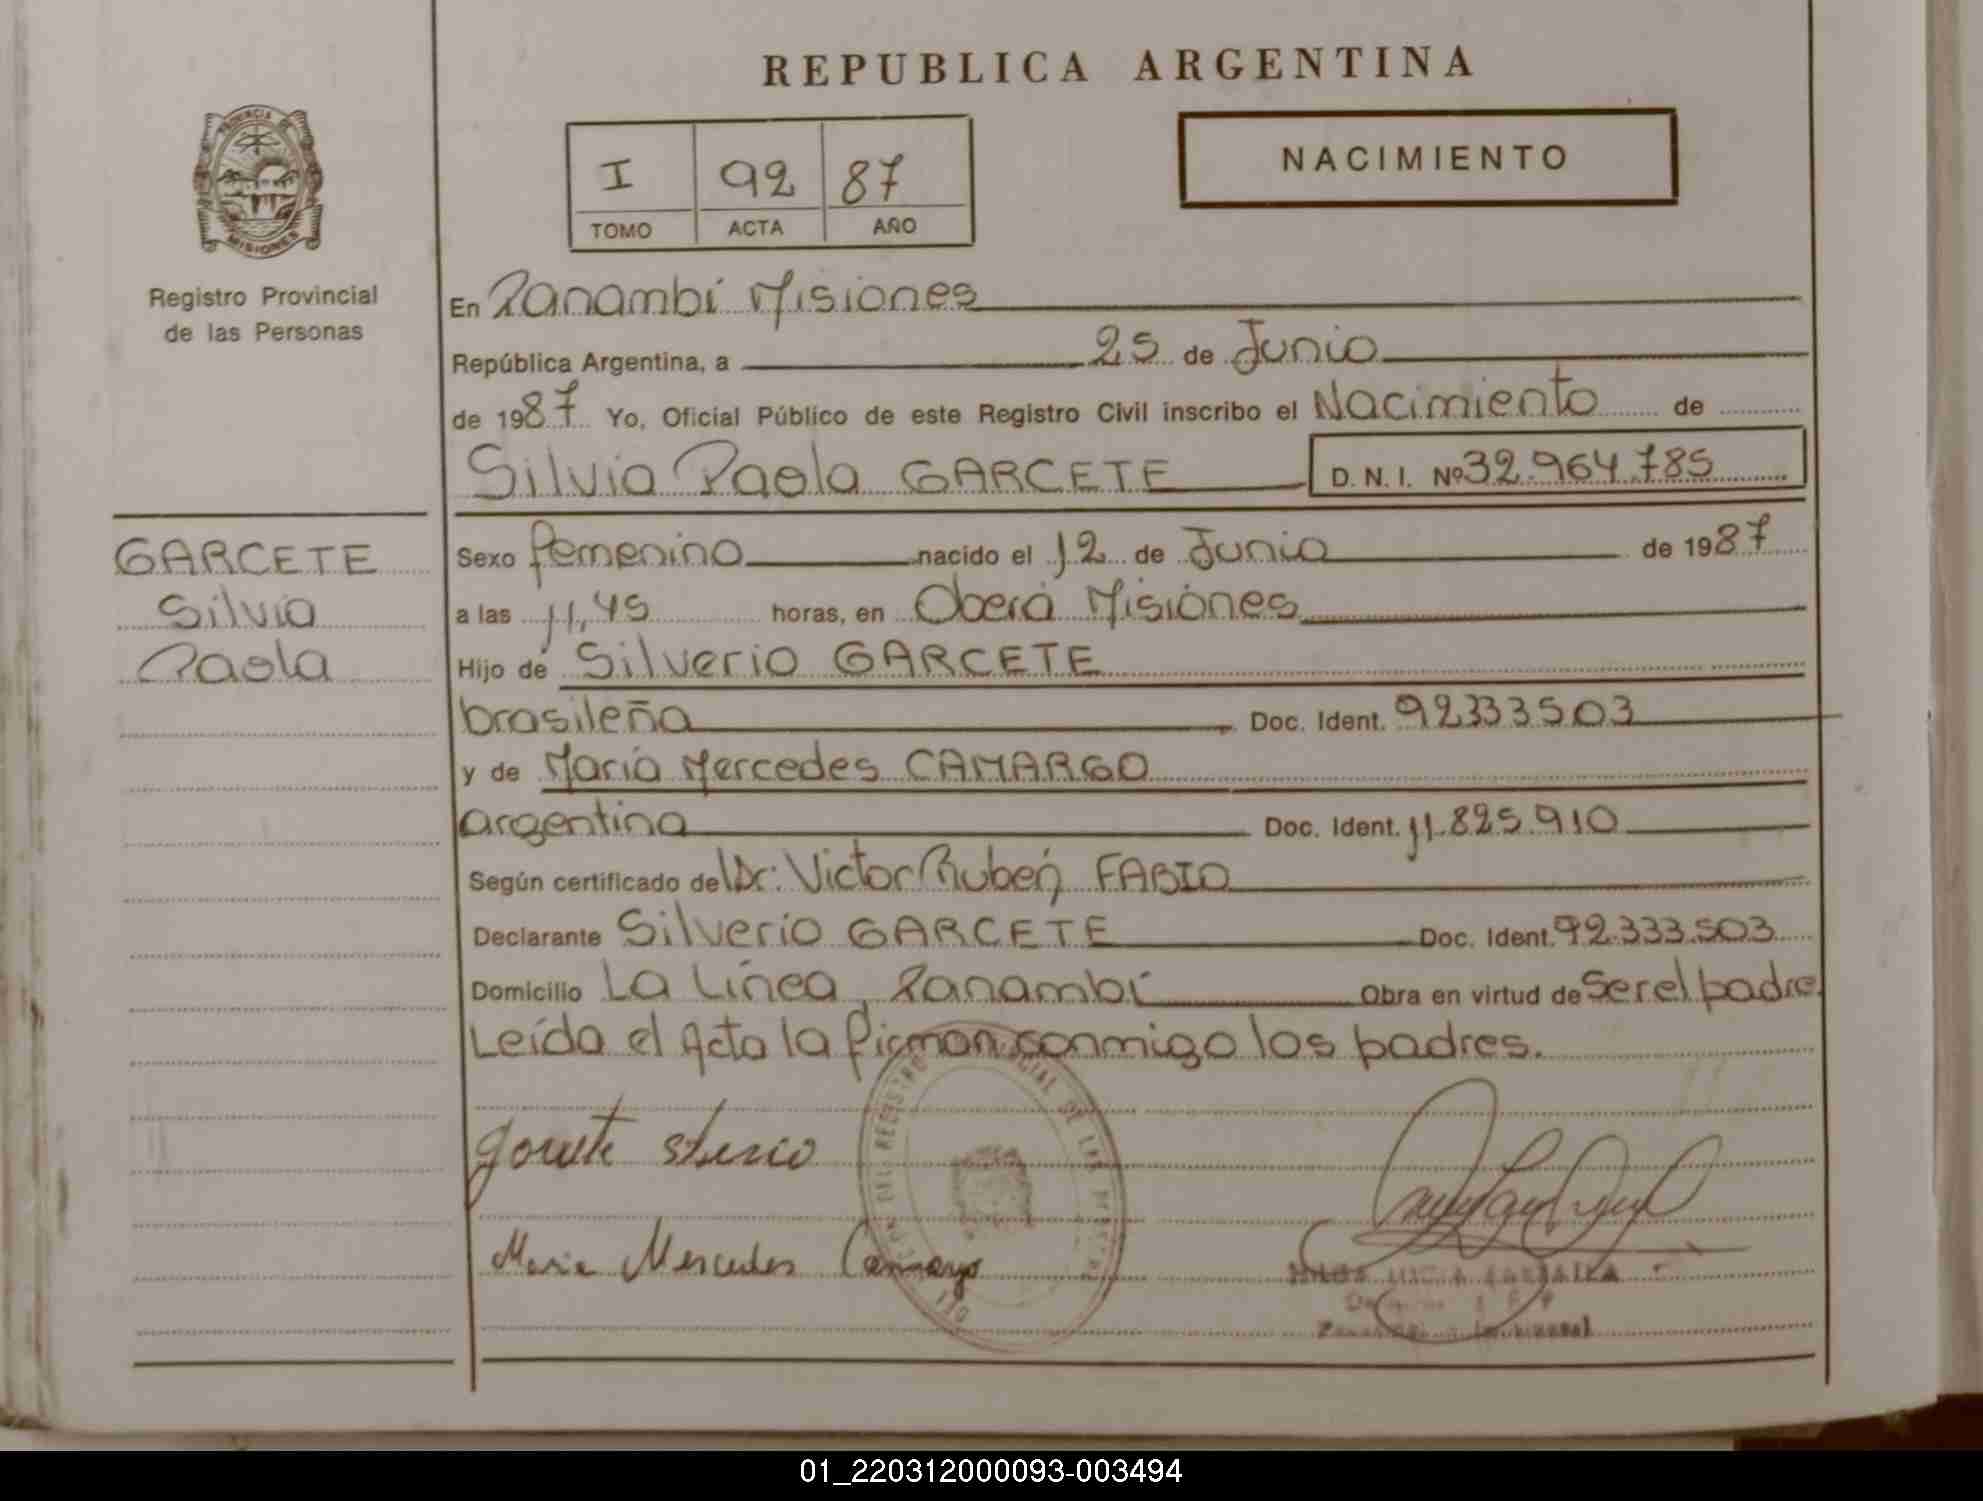 REPUBLICA ARGENTINA
PROVINCIA DE
MISIONES
I 92 87
TOMO ACTA AÑO
NACIMIENTO
Registro Provincial
de las Personas
En Panambí Misiones
República Argentina, a 25 de Junio
de 1987 Yo, Oficial Público de este Registro Civil inscribo el Nacimiento de
Silvia Paola GARCETE D.N.I. Nº 32.964.785
GARCETE
Silvia
Paola
Sexo femenino nacido el 12 de Junio de 1987
a las 11,45 horas, en Oberá Misiones
Hijo de Silverio GARCETE
brasileña Doc. Ident. 92333503
y de María Mercedes CAMARGO
argentina Doc. Ident. 11.825.910
Según certificado del Dr: Victor Rubén FABIO
Declarante Silverio GARCETE Doc. Ident. 92.333.503
Domicilio La Línea, Panambí Obra en virtud de Ser el padre.
Leída el Acta la firman conmigo los padres.
Maria Mercedes Camargo
01_220312000093-003494